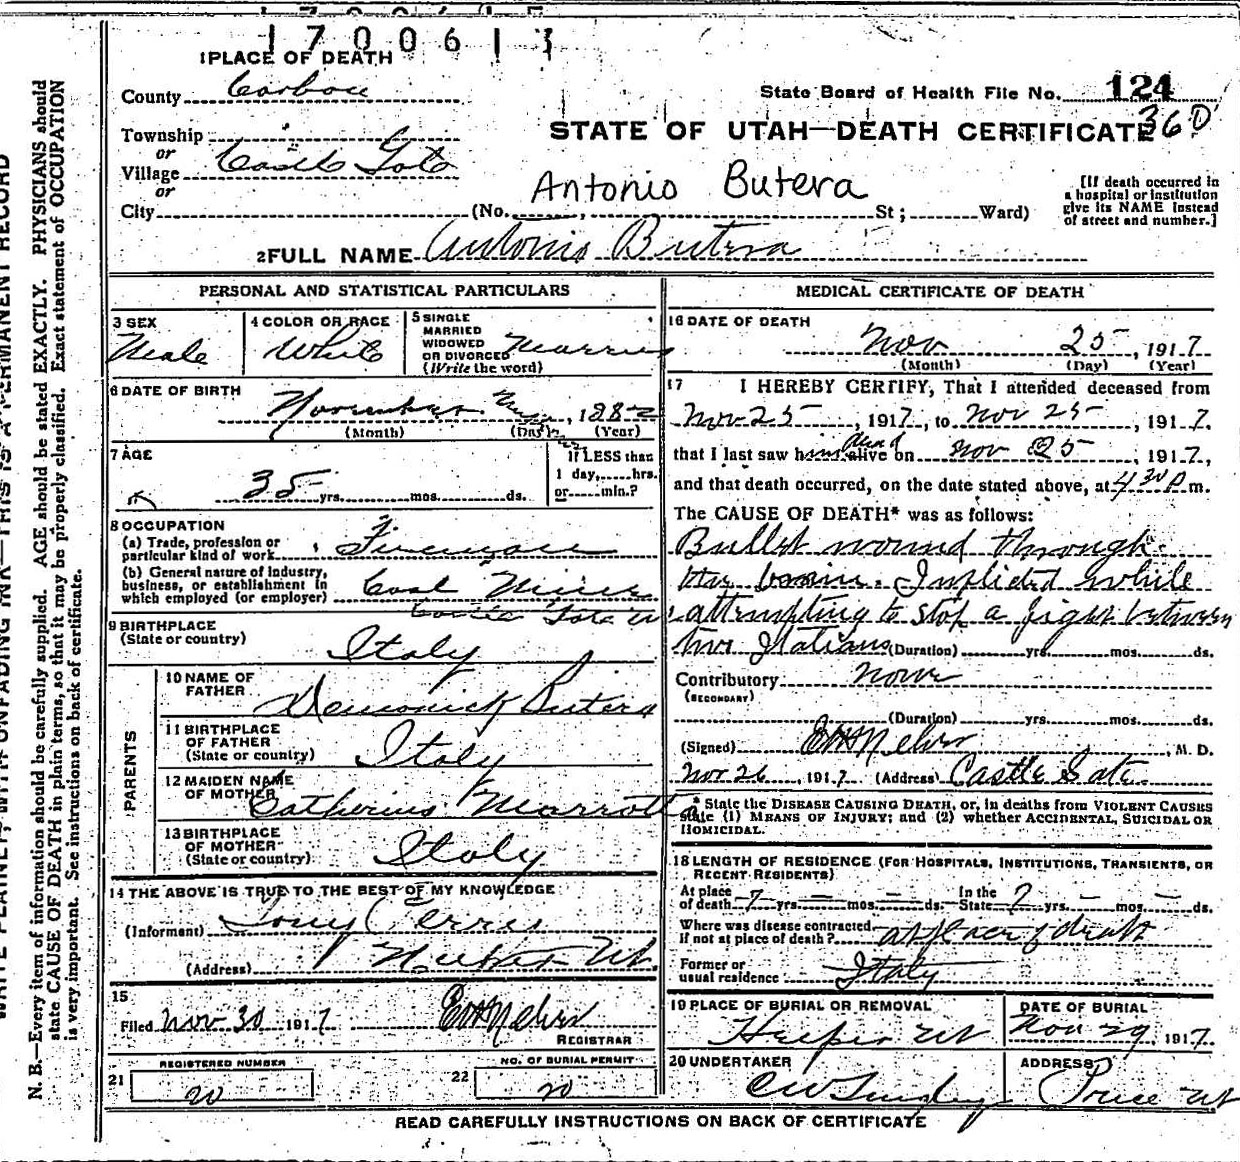 1700613
1 PLACE OF DEATH
County Carbon
State Board of Health File No. 124
360
STATE OF UTAH—DEATH CERTIFICATE
Township
or
Village Castle Gate
or
Antonio Butera
[If death occurred in
a hospital or institution
give its NAME instead
of street and number.]
City (No. , St ; Ward)
2 FULL NAME Antonio Butera
PERSONAL AND STATISTICAL PARTICULARS
3 SEX
Male
4 COLOR OR RACE
White
5 SINGLE
MARRIED
WIDOWED
OR DIVORCED
(Write the word)
Married
6 DATE OF BIRTH
November , 1882
(Month) (Day) (Year)
7 AGE
35 yrs. mos. ds.
If LESS than
1 day, hrs.
or min.?
8 OCCUPATION
(a) Trade, profession or
particular kind of work Fireman
(b) General nature of industry,
business, or establishment in
which employed (or employer) Coal Mine
Castle Gate Ut
9 BIRTHPLACE
(State or country) Italy
PARENTS
10 NAME OF
FATHER Domonick Butera
11 BIRTHPLACE
OF FATHER
(State or country) Italy
12 MAIDEN NAME
OF MOTHER Catherine Marrotta
13 BIRTHPLACE
OF MOTHER
(State or country) Italy
14 THE ABOVE IS TRUE TO THE BEST OF MY KNOWLEDGE
(Informant) Tony
(Address) Ut
15
Filed Nov 30 1917
REGISTRAR
REGISTERED NUMBER
21 20
NO. OF BURIAL PERMIT
22 20
MEDICAL CERTIFICATE OF DEATH
16 DATE OF DEATH
Nov 25, 1917
(Month) (Day) (Year)
17 I HEREBY CERTIFY, That I attended deceased from
Nov 25, 1917, to Nov 25, 1917.
that I last saw him dead alive on Nov 25, 1917,
and that death occurred, on the date stated above, at 4 30 P m.
The CAUSE OF DEATH* was as follows:
Bullet wound through
the brain. Inflicted while
attempting to stop a fight between
two Italians (Duration) yrs. mos. ds.
Contributory None
(SECONDARY)
(Duration) yrs. mos. ds.
(Signed) , M. D.
Nov 26, 1917. (Address) Castle Gate
* State the DISEASE CAUSING DEATH, or, in deaths from VIOLENT CAUSES
state (1) MEANS OF INJURY; and (2) whether ACCIDENTAL, SUICIDAL OR
HOMICIDAL.
18 LENGTH OF RESIDENCE (FOR HOSPITALS, INSTITUTIONS, TRANSIENTS, OR
RECENT RESIDENTS)
At place
of death 7 yrs. — mos. — ds. In the
State 7 yrs. — mos. — ds.
Where was disease contracted
if not at place of death? at place of death
Former or
usual residence Italy
19 PLACE OF BURIAL OR REMOVAL
Helper Ut
DATE OF BURIAL
Nov 29, 1917.
20 UNDERTAKER
ADDRESS
Price Ut
READ CAREFULLY INSTRUCTIONS ON BACK OF CERTIFICATE
N. B.—Every item of information should be carefully supplied. AGE should be stated EXACTLY. PHYSICIANS should
state CAUSE OF DEATH in plain terms, so that it may be properly classified. Exact statement of OCCUPATION
is very important. See instructions on back of certificate.